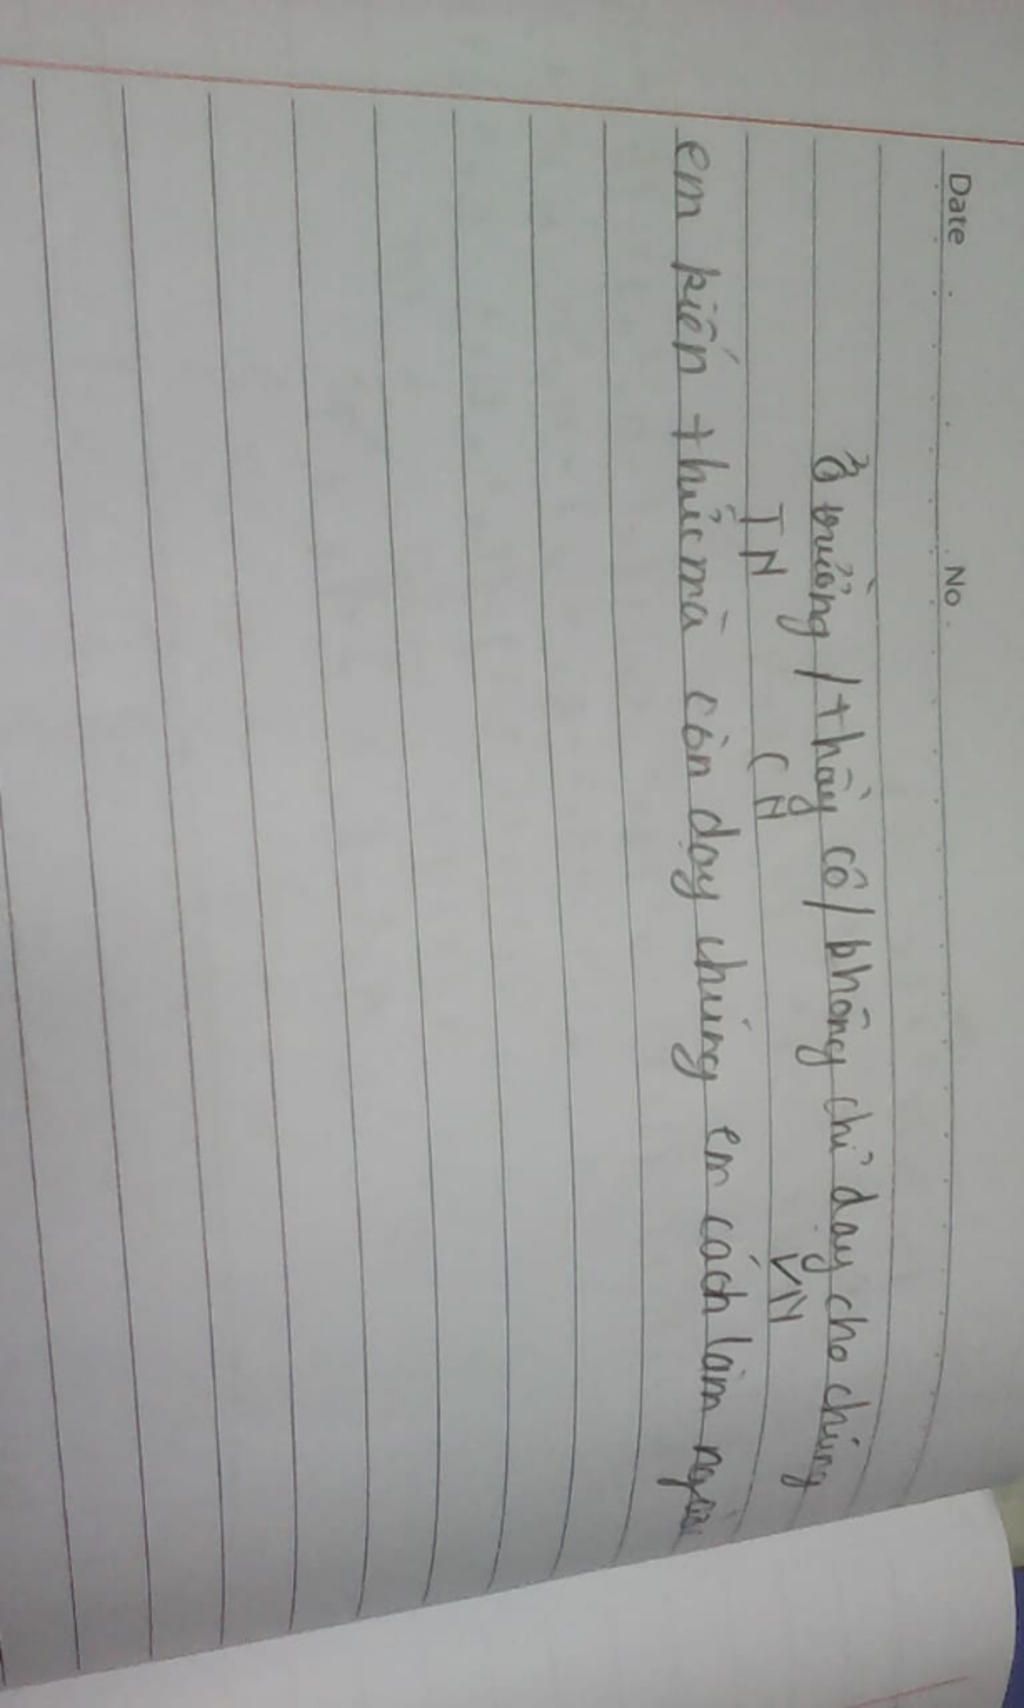 Date No.
Ở trường / thầy cô / không chỉ dạy cho chúng
TN CN VN
em kiến thức mà còn dạy chúng em cách làm người